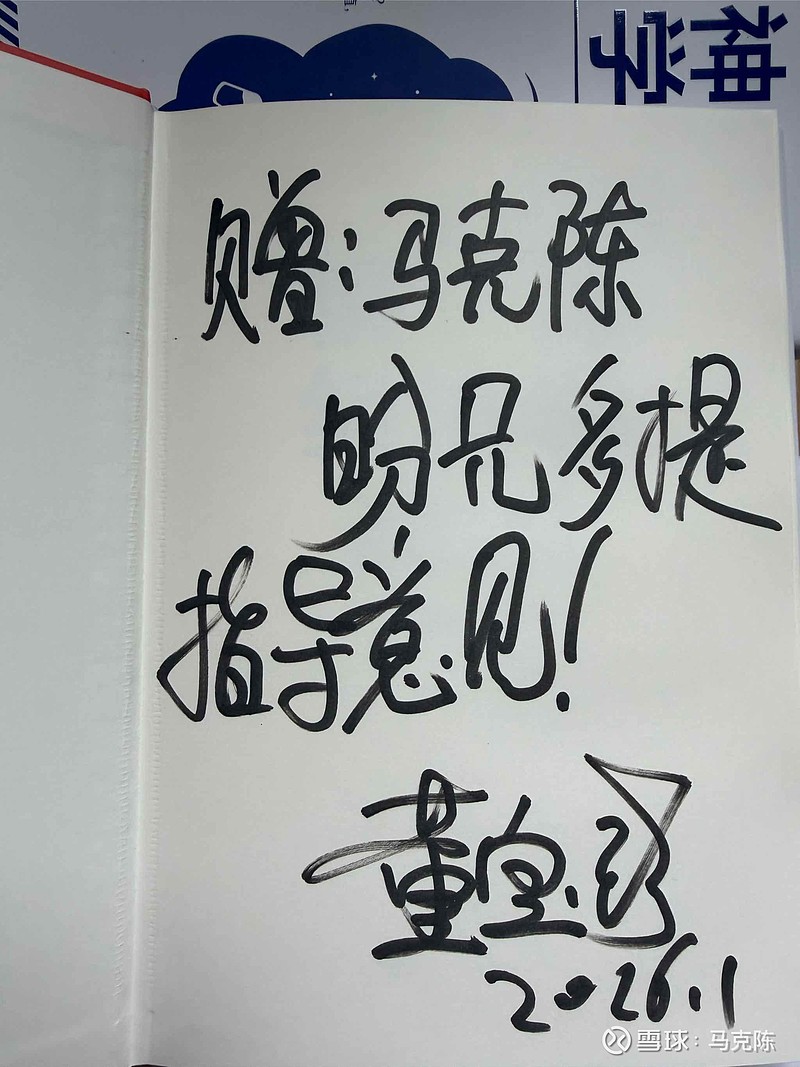 神学
赠：马克陈
盼兄多提
指导意见！
董宝珍
2026.1
雪球：马克陈